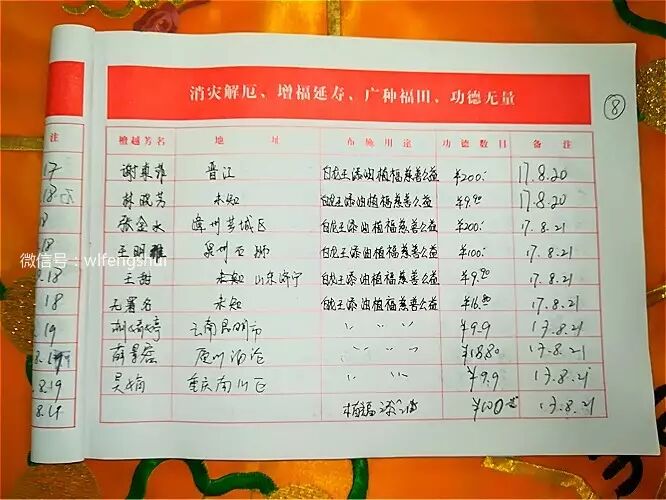 消灾解厄、增福延寿、广种福田、功德无量
8
注 檀越芳名 地 址 布施用途 功德数目 备 注
17 谢真菲 晋江 白龙王添油植福慈善公益 ¥200. 17.8.20
.18 林晓芳 未知 白龙王添油植福慈善公益 ¥9.90 17.8.20
18 张金水 漳州芗城区 白龙王添油植福慈善公益 ¥200. 17.8.21
.18 王明雅 泉州石狮 白龙王添油植福慈善公益 ¥100. 17.8.21
微信号：wlfengshui
.18 王甜 未知 山东济宁 白龙王添油植福慈善公益 ¥9.90 17.8.21
18 无署名 未知 白龙王添油植福慈善公益 ¥16.80 17.8.21
.19 云南昆明市 〃 〃 ¥9.9 17.8.21
8.19 〃 〃 ¥18.80 17.8.21
.8.19 吴娟 重庆南川区 〃 〃 ¥9.9 17.8.21
8.19 植福添油 ¥100 17.8.21